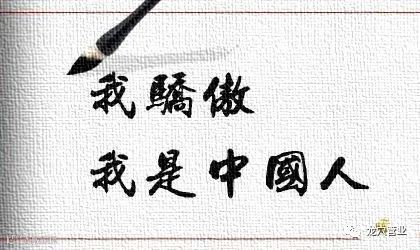 我驕傲
我是中國人
龙穴营业